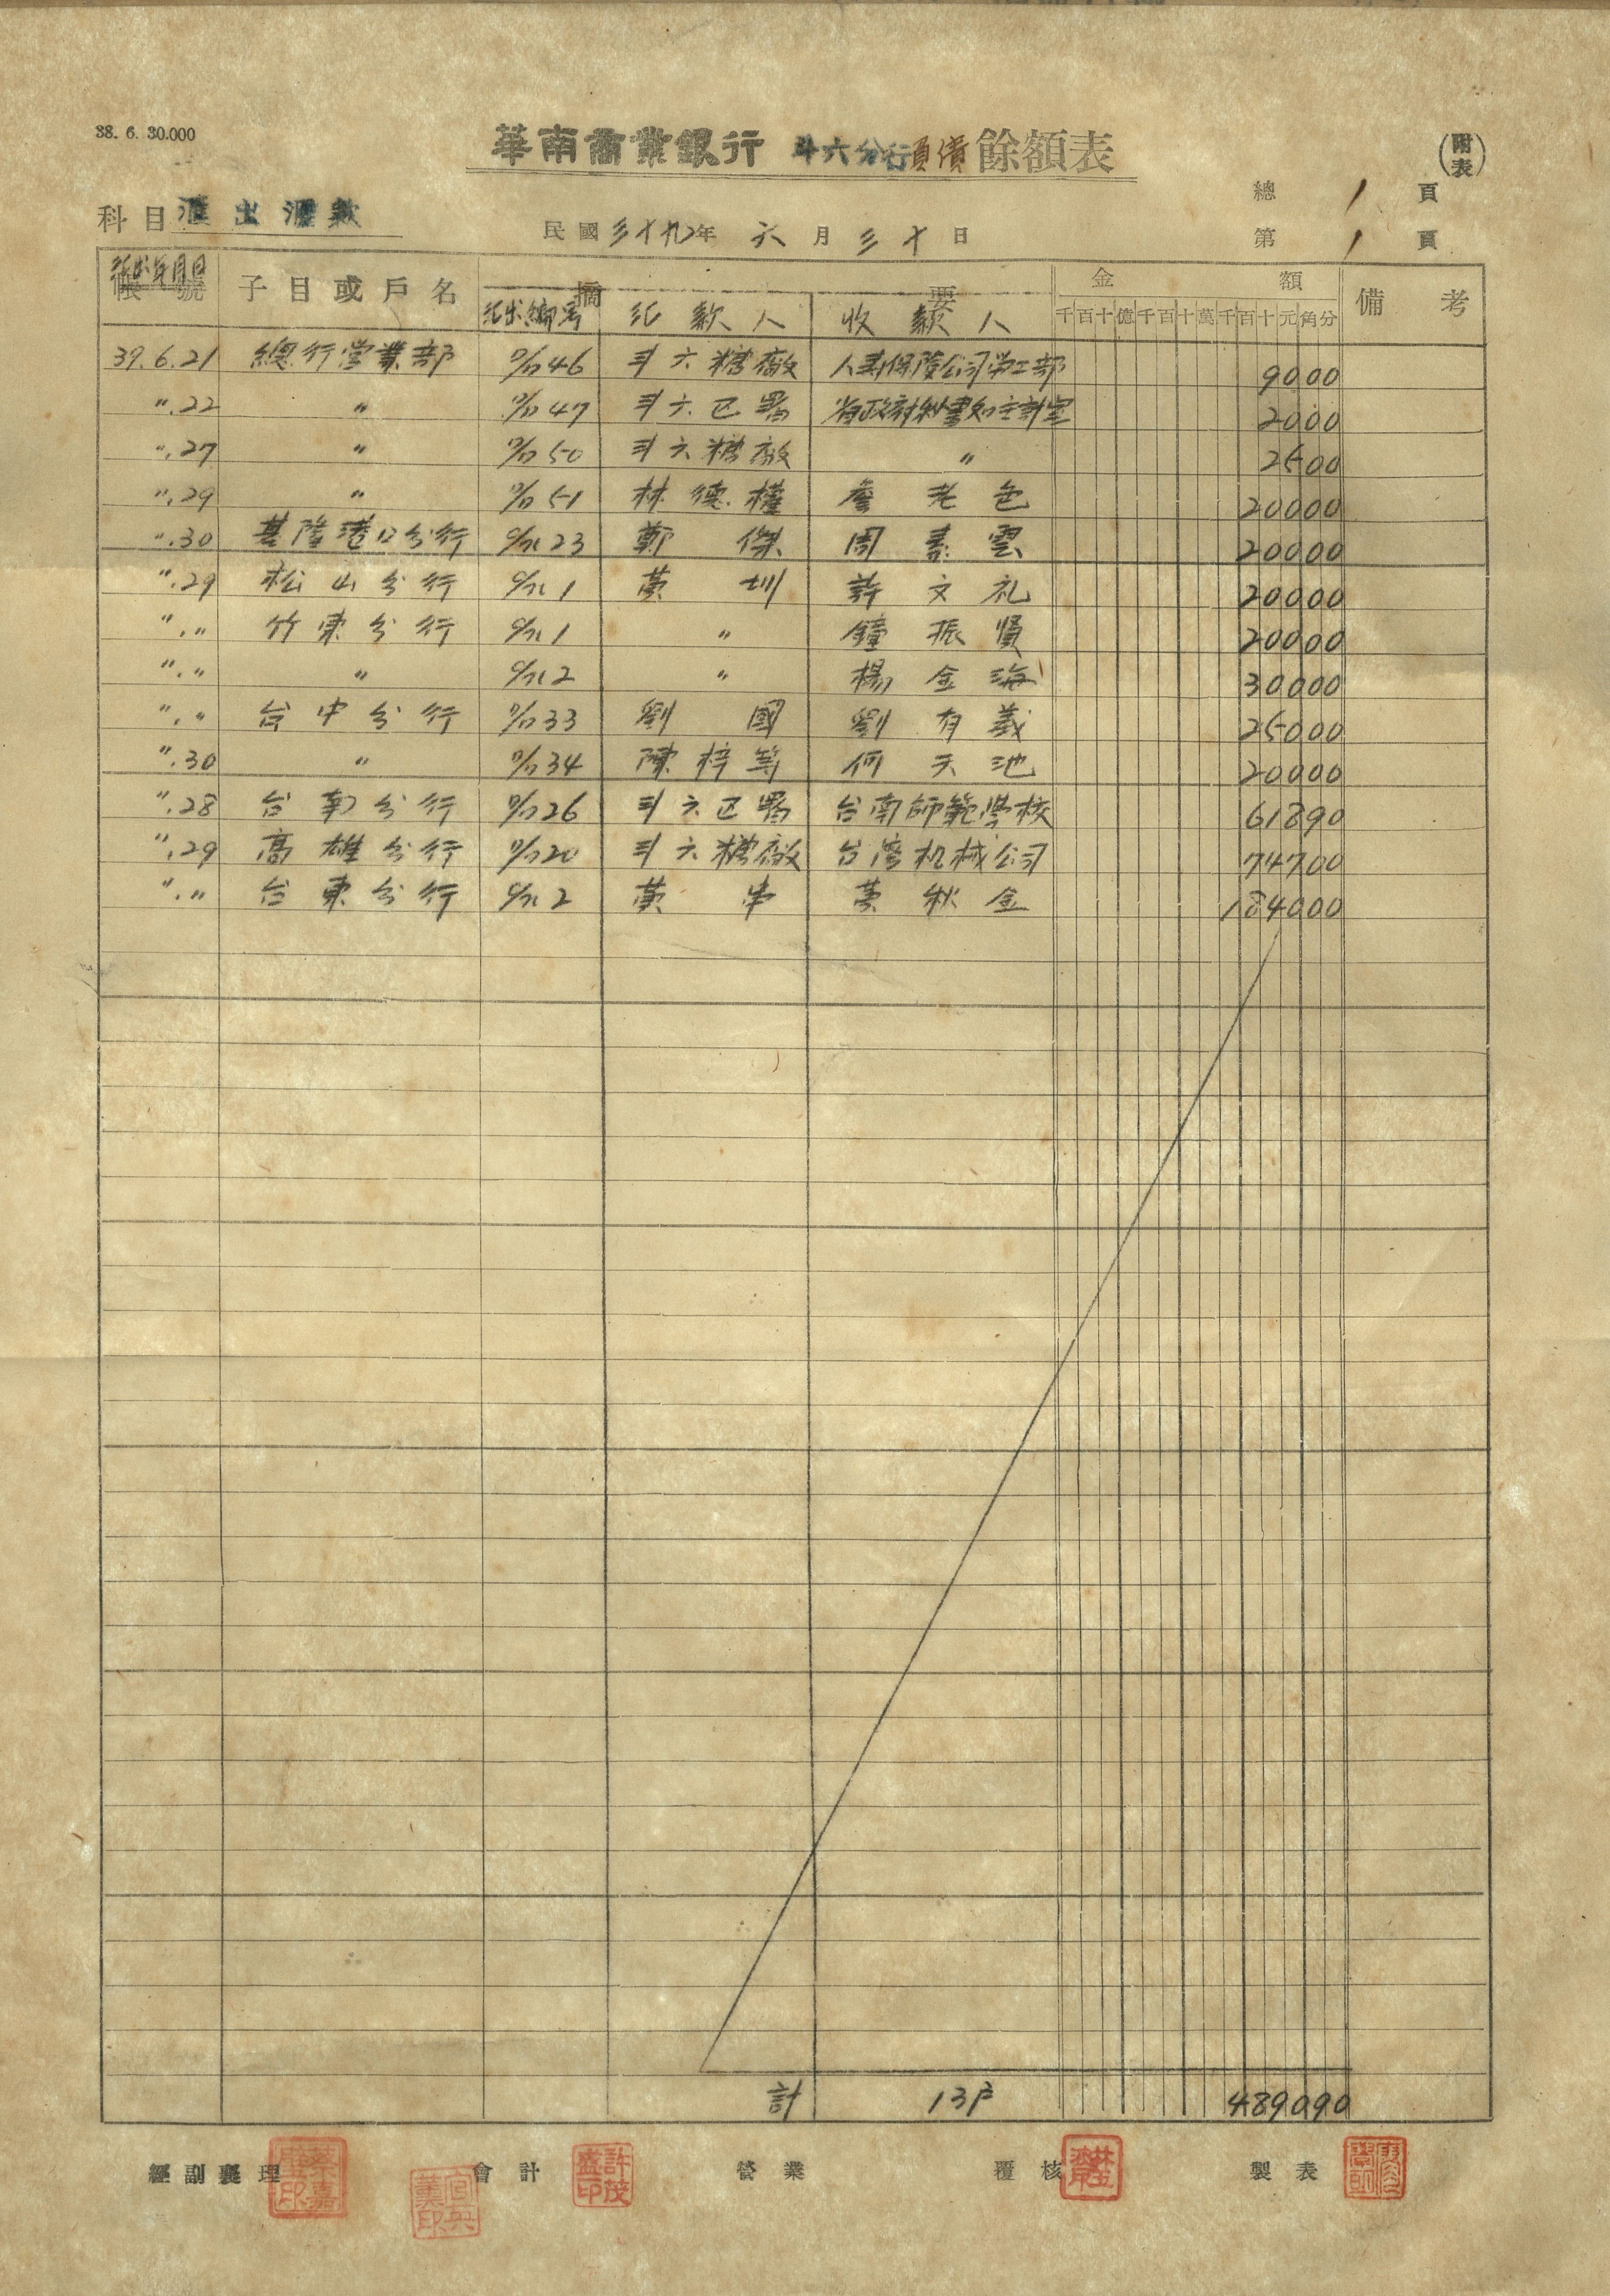 38. 6. 30.000
華南商業銀行 斗六分行負債餘額表
(附表)
總 1 頁
科目 滙出滙款
民國三十九年 六月三十日
第 1 頁
帳號 子目或戶名 摘要 金額 備考
滙出年月日 滙出編号 滙款人 收款人 千百十億千百十萬千百十元角分
39.6.21 總行営業部 46 斗六糖廠 人壽保險公司勞工部 9000
〃.22 〃 47 斗六区署 2000
〃.27 〃 50 斗六糖廠 〃 2500
〃.29 〃 51 林德權 詹老色 20000
〃.30 基隆港口分行 23 鄭傑 周壽雲 20000
〃.29 松山分行 1 黃圳 許文礼 20000
〃.〃 竹東分行 1 〃 鐘振賢 20000
〃.〃 〃 2 〃 楊金海 30000
〃.〃 台中分行 33 劉國 劉有義 25000
〃.30 〃 34 陳梓等 何天池 20000
〃.28 台南分行 26 斗六区署 台南師範學校 61890
〃.29 高雄分行 20 斗六糖廠 台湾机械公司 74700
〃.〃 台東分行 2 黃串 黃秋金 184000
計 13户 489090
經副襄理 會計 營業 覆核 製表
許茂盛印